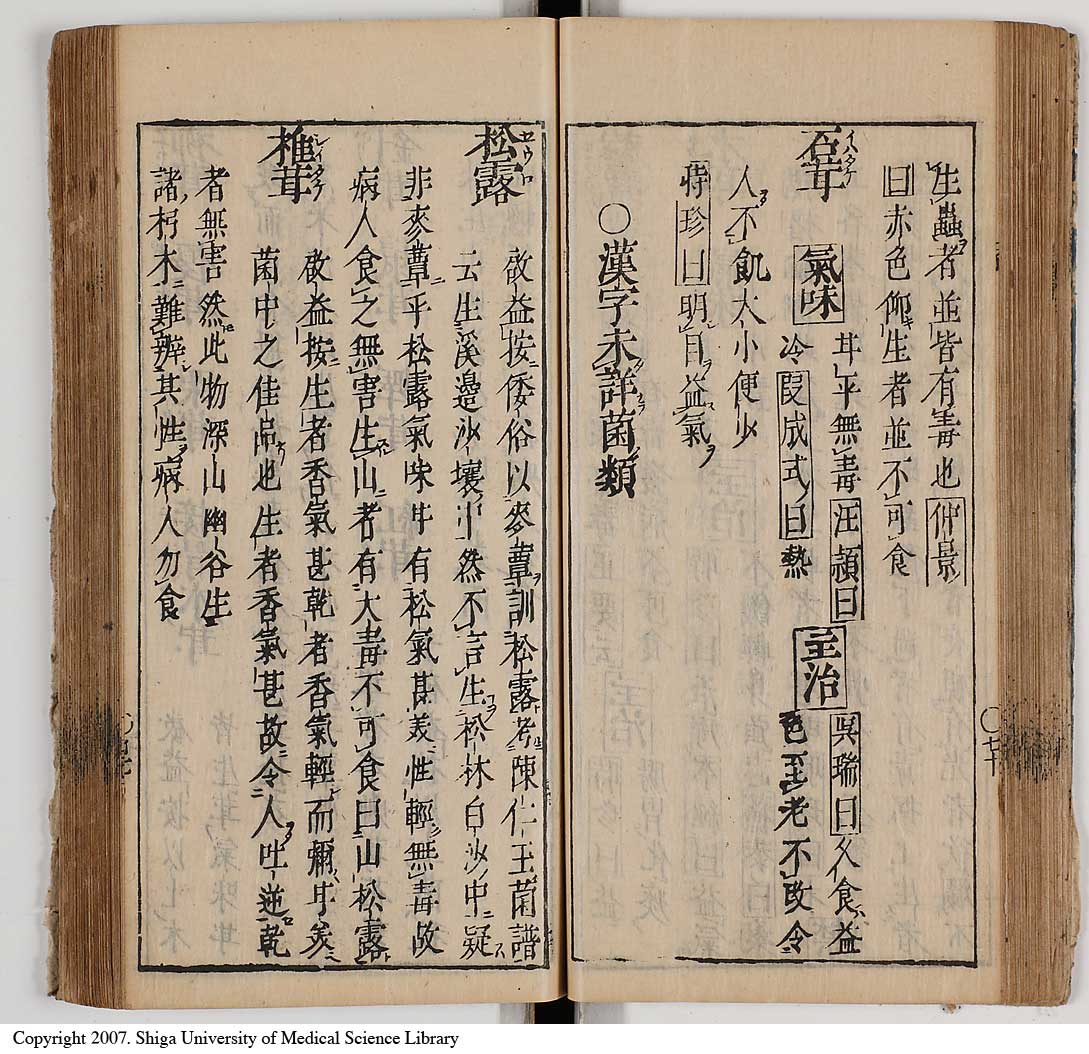 生蟲者並皆有毒也仲景
曰赤色仰生者並不可食
石茸 イハタケ
氣味
耳平無毒汪頴曰
冷段成式曰熱
主治
呉瑞曰久食益
色至老不改令
人不飢大小便少
時珍曰明目益氣
○漢字未詳菌類
松露 セウロ
敬益按倭俗以麥蕈訓松露考陳仁玉菌譜
云生溪邊沙壤中然不言生松林白沙中疑
非麥蕈乎松露氣味甘有松氣甚美性輕無毒故
病人食之無害生山者有大毒不可食曰山松露
椎茸 シイタケ
敬益按生者香氣甚乾者香氣輕而彌甘美
菌中之佳品也生者香氣甚故令人吐逆乾
者無害然此物深山幽谷生
諸朽木難辨其性病人勿食
Copyright 2007. Shiga University of Medical Science Library